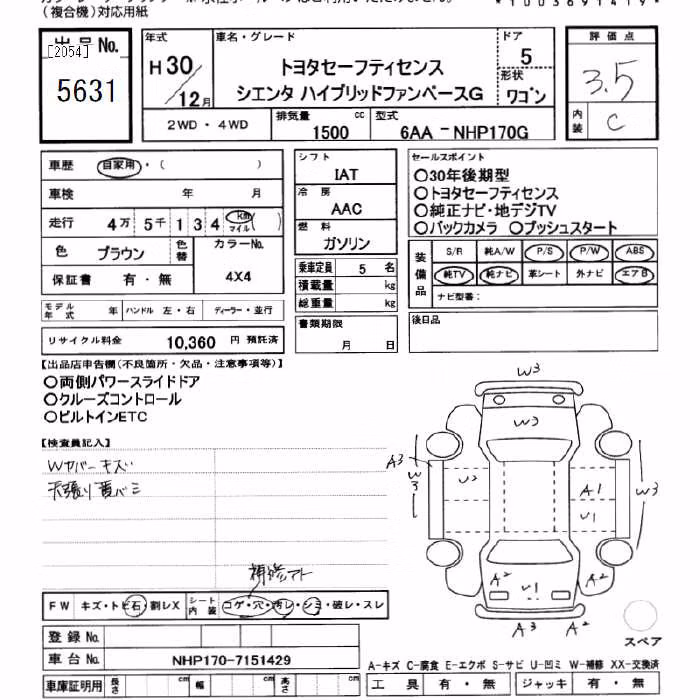 (複合機)対応用紙
*1003691419*
出品No.
[2054]
5631
年式
H30/12月
車名・グレード
トヨタセーフティセンス
シエンタ ハイブリッドファンベースG
ドア
5
形状
ワゴン
評価点
3.5
内装
C
2WD・4WD
排気量
1500 cc
型式
6AA-NHP170G
車歴 自家用・( )
車検 年 月
走行 4万 5千 1 3 4 km マイル ( )
色 ブラウン 色替
カラーNo.
4X4
保証書 有・無
モデル年式 年 ハンドル 左・右 ディーラー・並行
リサイクル料金 10,360 円 預託済
シフト
IAT
冷房
AAC
燃料
ガソリン
乗車定員 5 名
積載量 kg
総重量 kg
書類期限
月 日
セールスポイント
○30年後期型
○トヨタセーフティセンス
○純正ナビ・地デジTV
○バックカメラ ○プッシュスタート
装備品
S/R 純A/W P/S P/W ABS
純TV 純ナビ 革シート 外ナビ エアB
ナビ型番:
後日品
【出品店申告欄(不良箇所・欠品・注意事項等)】
○両側パワースライドドア
○クルーズコントロール
○ビルトインETC
【検査員記入】
Wカバーキズ
天張り黄バミ
補修アト
FW キズ・トビ石・割レX シート内装 コゲ・穴・汚レ・シミ・破レ・スレ
W3
W3
A3
W3
U2
A1
U1
W3
A2
U1
A2
A3
A2
スペア
登録No.
車台No. NHP170-7151429
車庫証明用 長さ cm 幅 cm 高さ cm
A-キズ C-腐食 E-エクボ S-サビ U-凹ミ W-補修 XX-交換済
工具 有・無 ジャッキ 有・無